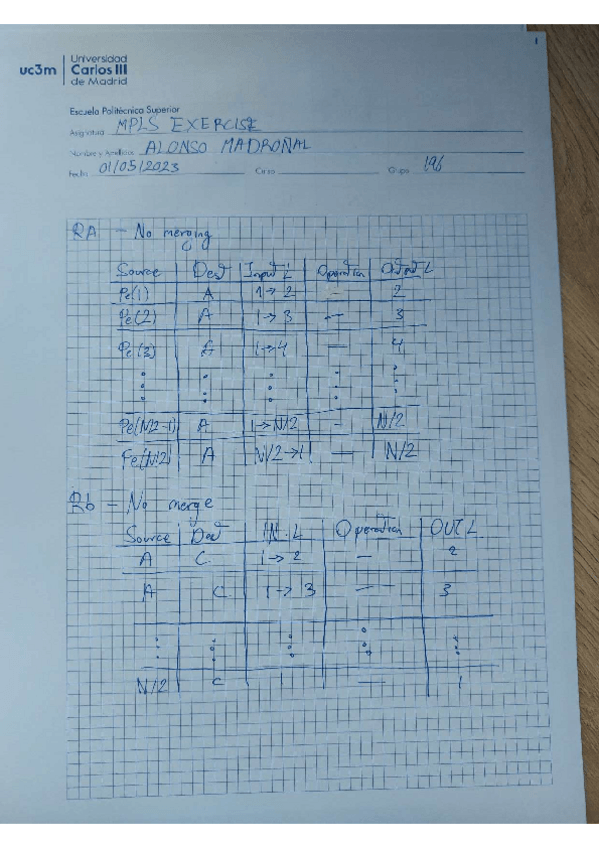 1
uc3m | Universidad
Carlos III
de Madrid
Escuela Politécnica Superior
Asignatura MPLS EXERCISE
Nombre y Apellidos ALONSO MADROÑAL
Fecha 01/05/2023 Curso Grupo 196
RA - No merging
Source Dest Input L Operation Output L
Pe(1) A 1→2 — 2
Pe(2) A 1→3 — 3
Pe(3) A 1→4 — 4
Pe(N/2-1) A 1→N/2 — N/2
Pe(N/2) A N/2→1 — N/2
Rb - No merge
Source Dest IN. L Operation OUT L
A C 1→2 — 2
A C 1→3 — 3
N/2 C 1 — 1